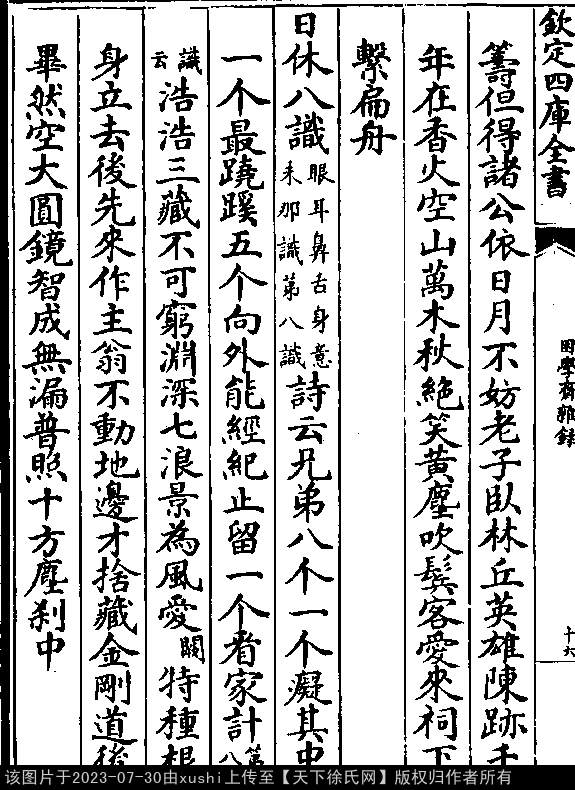 欽定四庫全書
困學齋雜録
十六
籌但得諸公依日月不妨老子臥林丘英雄陳跡千
年在香火空山萬木秋絶笑黄塵吹鬂客愛來祠下
繫扁舟
日休八識眼耳鼻舌身意末那識第八識詩云兄弟八个一个癡其中
一个最蹺蹊五个向外能經紀止留一个看家計第八
識云浩浩三藏不可窮淵深七浪景為風愛闕特種根
身立去後先來作主翁不動地邊才捨藏金剛道後
畢然空大圓鏡智成無漏普照十方塵刹中
该图片于2023-07-30由xushi上传至【天下徐氏网】版权归作者所有